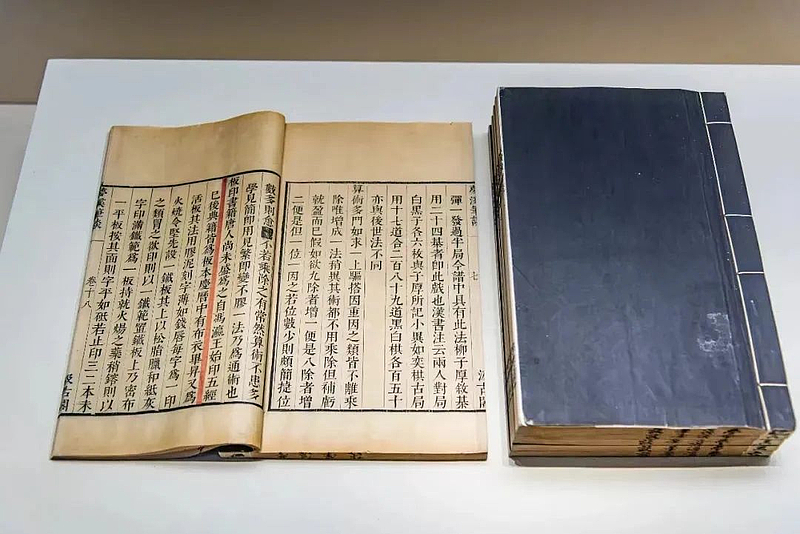 彈 發過半局今譜中具有此法柳子厚敘棊
用二十四棊者即此戲也漢書注云兩人對局
白黑子各六枚與子厚所記小異如奕棋古局
用十七道合二百八十九道黑白棋各百五十
亦與後世法不同
算術多門如求一上驅搭因重因之類皆不離乘
除唯增成一法稍異其術都不用乘除但補虧
就盈而已假如欲九除者增一便是八除者增
二便是但一位一因之若位數少則頗簡捷位
數多則愈 不若乘除之有常然算術不患多
學見簡即用見繁即變不膠一法乃爲通術也
板印書籍唐人尚未盛爲之自馮瀛王始印五經
已後典籍皆爲板本慶曆中有布衣畢昇又爲
活板其法用膠泥刻字薄如錢唇每字爲一印
火燒令堅先設一鐵板其上以松脂臘和紙灰
之類冒之欲印則以一鐵範置鐵板上乃密布
字印滿鐵範爲一板持就火煬之藥稍鎔則以
一平板按其面則字平如砥若止印三二本未
溪筆談
卷十八
汲古閣